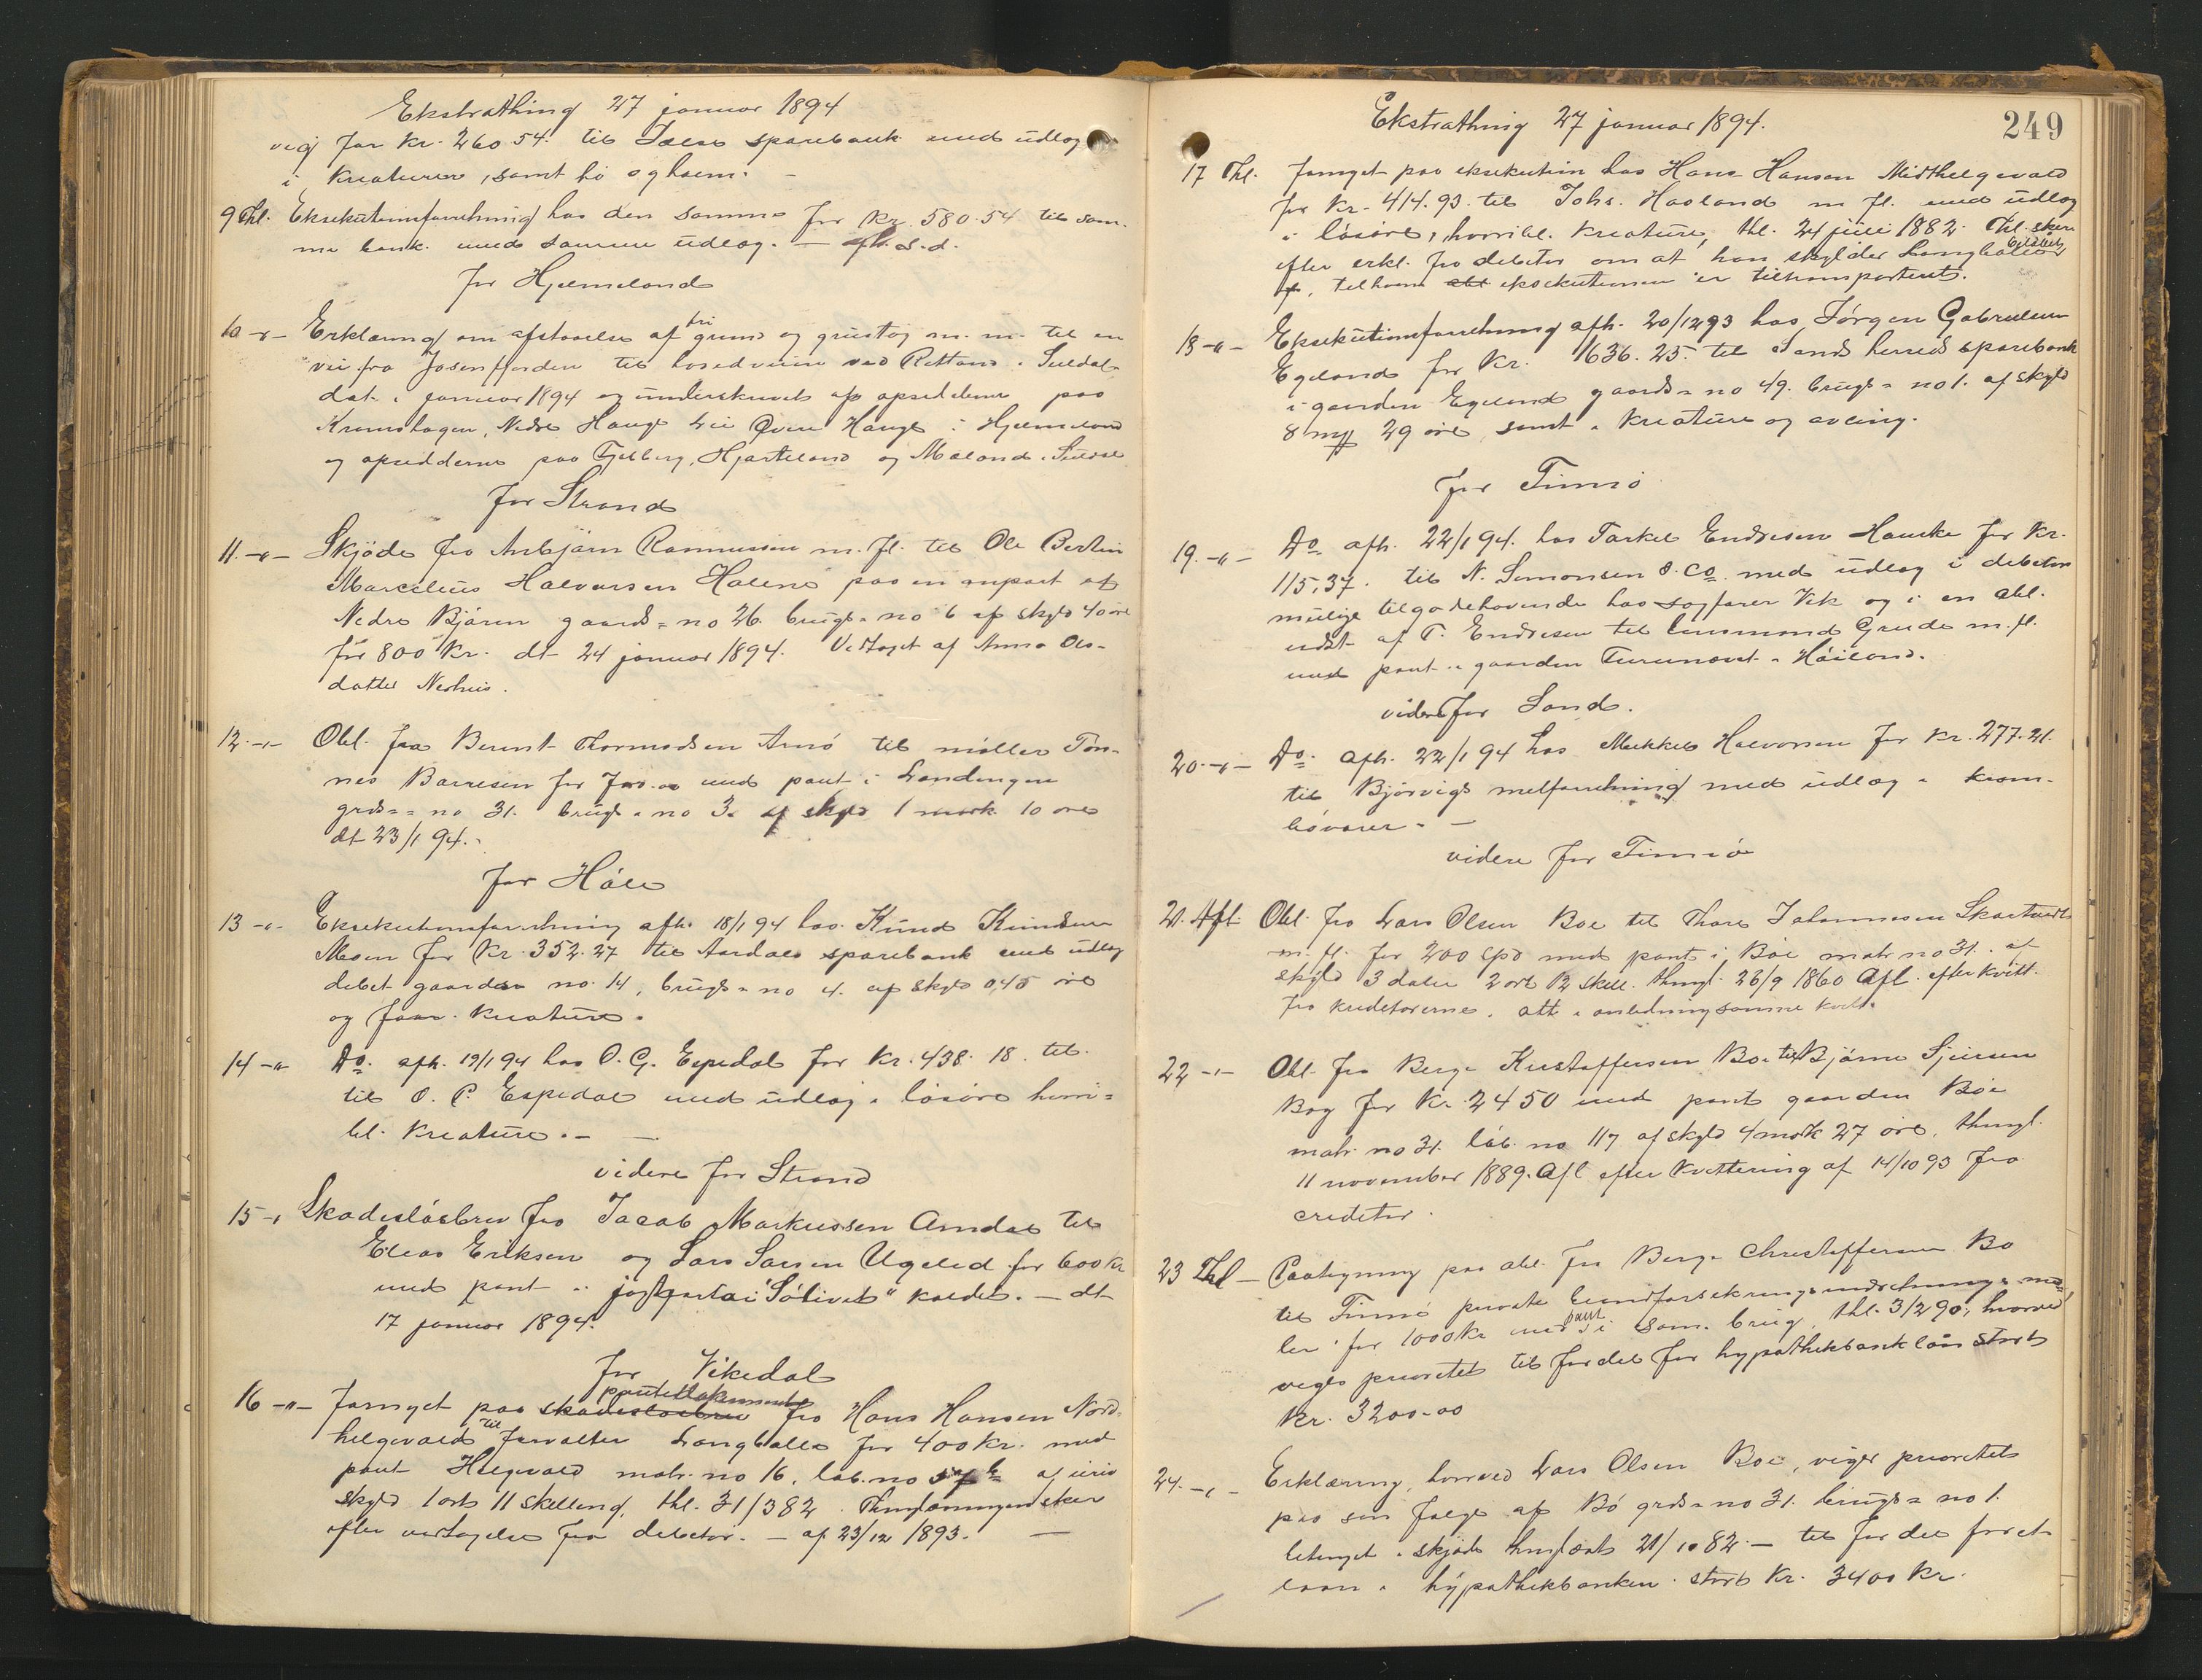 Ekstrathing 27 januar 1894
vig for Kr. 260 54. til Jælsø sparebank med udlæg
i Kreaturer, samt hø og halm. -
9 Thl. Eksekutionsforretning hos den samme for Kr 580.54 til sam-
me bank med samme udlæg. - afh. s. d.
for Hjelmeland
10 -"- Erklæring om afstaaelse af fri grund og grustag m. m. til en
vei fra Jøsenfjorden til hovedveien ved Rettand i Suldal
dat. i januar 1894 og underskrevet af opsidderne paa
Kromshagen, Nedre Hauge Lie Øvre Hauge i Hjelmeland
og opsidderne paa Fjelberg, Hjorteland og Mæland i Suldal
for Strand
11. -"- Skjøde fra Anbjørn Rasmussen m. fl. til Ole Bertin
Marcelius Halvorsen Holene paa en anpart af
Nedre Bjørm gaards=no 26. brugs=no 6 af skyld 40 øre
for 800 Kr. dt 24 januar 1894. Vedtaget af Anna Ols-
datter Nerhus.
12. -"- Obl. fra Bernt Thormodsen Arnø til møller Tøn-
nes Barresen for 700.00 med pant i Landingen
grds== no 31. brugs=no 3. af skyld 1 mark 10 øre
dt 23/1 94. -
for Høle
13 -"- Eksekutionsforretning afh. 18/1 94 hos Knud Knudsen
Moen for Kr. 352.27 til Aardals sparebank med udlæg
debet gaarden no 14, brugs=no 4. af skyld 0,45 øre
og faar. kreature.
14 -"- Do. afh. 19/1 94 hos O. G. Espedal for Kr. 438. 18. til
til O. P. Espedal med udlæg i løsøre hvori=
bl. Kreature. -
videre for Strand
15 -" Skadesløsbrev fra Jacob Markussen Amdal til
Elias Eriksen og Lars Larsen Ugelid for 600 Kr
med pant i jagt galeai "Sølivet" kaldet. - dt
17 januar 1894.
for Vikedal
16 -"- Fornyet paa skadesløsbrev pantedokument fra Hans Hansen Nord-
helgevold til forvalter Langballe for 400 Kr. med
pant Helgevold matr. no 16. løb. no 57 b af urev.
skyld 1 ort 11 skilling, thl. 31/3 82. Thinglæsningen sker
efter vedtagelse fra debetor. - af 23/12 1893. -
Ekstrathing 27 januar 1894.
249
17 Thl. Fornyet paa eksekution hos Hans Hansen Midthelgevold
for Kr. 414.93 til Johs. Haaland m fl. med udlæg
i løsøre, hvoribl. kreature, thl. 24 juli 1882. Thl. sker
efter erkl. fra debetor om at han skylder Langballes
til hvem eksekutionen er tiltransporteret.
18 -"- Eksekutionsforretning afh. 20/12 93 hos Jørgen Gabrielsen
Egeland for Kr. 1636. 25. til Sands herreds sparebank
i gaarden Egeland gaards=no 49. brugs=no 1. af skyld
8 mrk 29 øre samt i kreature og avling.
for Finnø
19. -"- Do afh. 22/1 94. hos Torkel Endresen Hauske for Kr.
115,37. til N. Simonsen & Co med udlæg i debetors
mulige tilgodehavende hos sagfører Vik og i en obl.
udst. af T. Endresen til lensmand Grude m. fl.
med pant i gaarden Furunæset i Høiland.
videre for Sand.
20. -"- Do. afh. 22/1 94 hos Mikkel Halvorsen for Kr. 277.21.
til Bjørvigs melforretning med udlæg i kram-
bøvarer. -
videre for Finnø
21. Afl. Obl. fra Lars Olsen Boe til Thore Johannesen Skartveit
m. fl. for 200 Spd med pant i Bøe matr no 31. af
skyld 3 daler 2 ort 12 skill. thingl. 26/9 1860 Afl. efter kvitt.
fra kreditorerne. att. i anledning samme kvitt.
22 -"- Obl. fra Berge Kristoffersen Bo til Bjørne Sjursen
Bog for Kr. 2450 med pant gaarden Bøe
matr. no 31. løb. no 117 af skyld 4 mark 27 øre, thingl.
11 november 1889. Afl efter kvittering af 14/10 93 fra
creditor.
23 Thl - Paategning paa obl. fra Berge Christoffersen Bo
til Finnø private brandforsikringsindretnings mid-
ler for 1000 Kr med pant i sam. brug, thl. 3/2 90, hvorved
veges prioritet til fordel for hypothekbanklaan stort
Kr. 3200-00
24. -"- Erklæring, hvorved Lars Olsen Boe, viger prioritet
paa sin følge af Bø grds=no 31. brugs=no 1.
betinget i skjøde thinglæst 21/10 82. - til fordel for et
laan i hypothekbanken stort Kr. 3400 Kr.